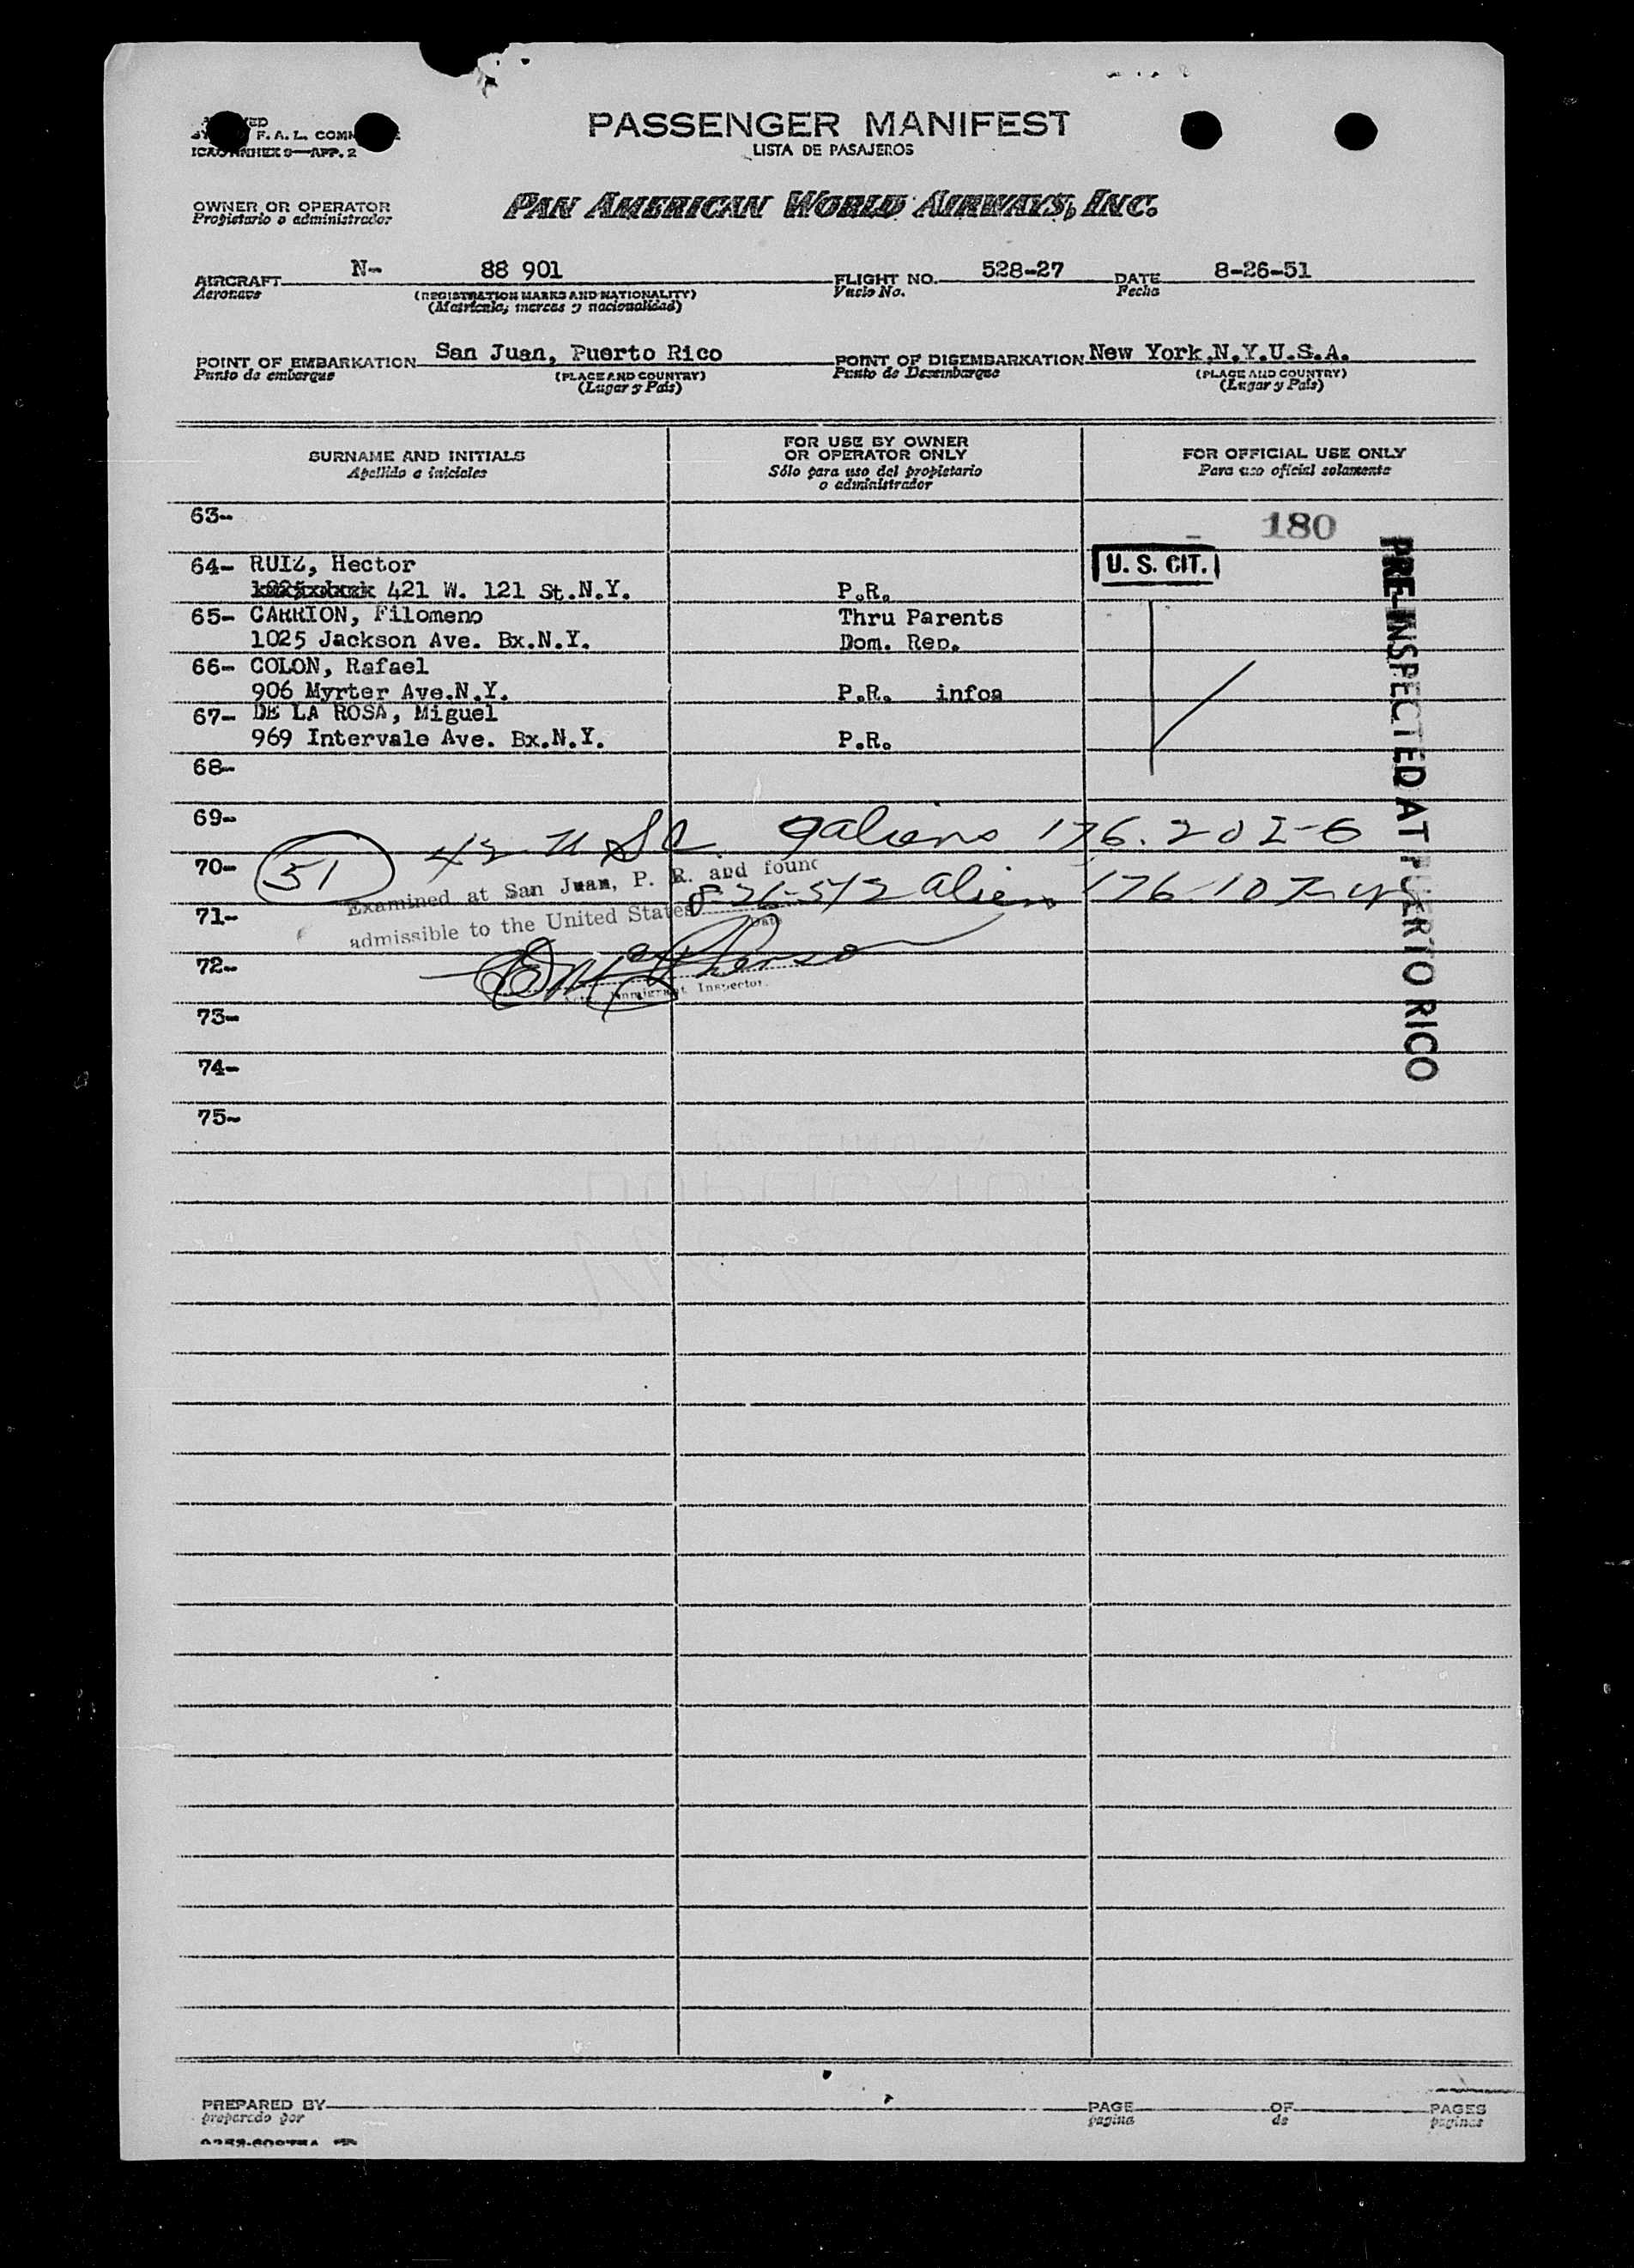 PASSENGER MANIFEST
LISTA DE PASAJEROS
F. A. L.
ICAO ANNEX 9—APP. 2
OWNER OR OPERATOR
Propietario o administrador
PAN AMERICAN WORLD AIRWAYS, INC.
AIRCRAFT N- 88 901 FLIGHT NO. 528-27 DATE 8-26-51
Aeronave (REGISTRATION MARKS AND NATIONALITY) Vuelo No. Fecha
(Matrícula, marcas y nacionalidad)
POINT OF EMBARKATION San Juan, Puerto Rico POINT OF DISEMBARKATION New York,N.Y.U.S.A.
Punto de embarque (PLACE AND COUNTRY) Punto de Desembarque (PLACE AND COUNTRY)
(Lugar y País) (Lugar y País)
SURNAME AND INITIALS FOR USE BY OWNER OR OPERATOR ONLY FOR OFFICIAL USE ONLY
Apellido e iniciales Sólo para uso del propietario o administrador Para uso oficial solamente
63- 180
64- RUIZ, Hector U. S. CIT.
421 W. 121 St.N.Y. P.R.
65- CARRION, Filomeno Thru Parents
1025 Jackson Ave. Bx.N.Y. Dom. Rep.
66- COLON, Rafael
906 Myrter Ave.N.Y. P.R. infoa
67- DE LA ROSA, Miguel
969 Intervale Ave. Bx.N.Y. P.R.
68-
69-
51 42 U S C 9 aliens 176.202-6
70-
Examined at San Juan, P. R. and found
admissible to the United States 8-26-51 2 aliens 176.107
Date
71-
72-
Immigrant Inspector.
73-
74-
75-
PRE-INSPECTED AT PUERTO RICO
PREPARED BY PAGE OF PAGES
preparado por pagina de paginas